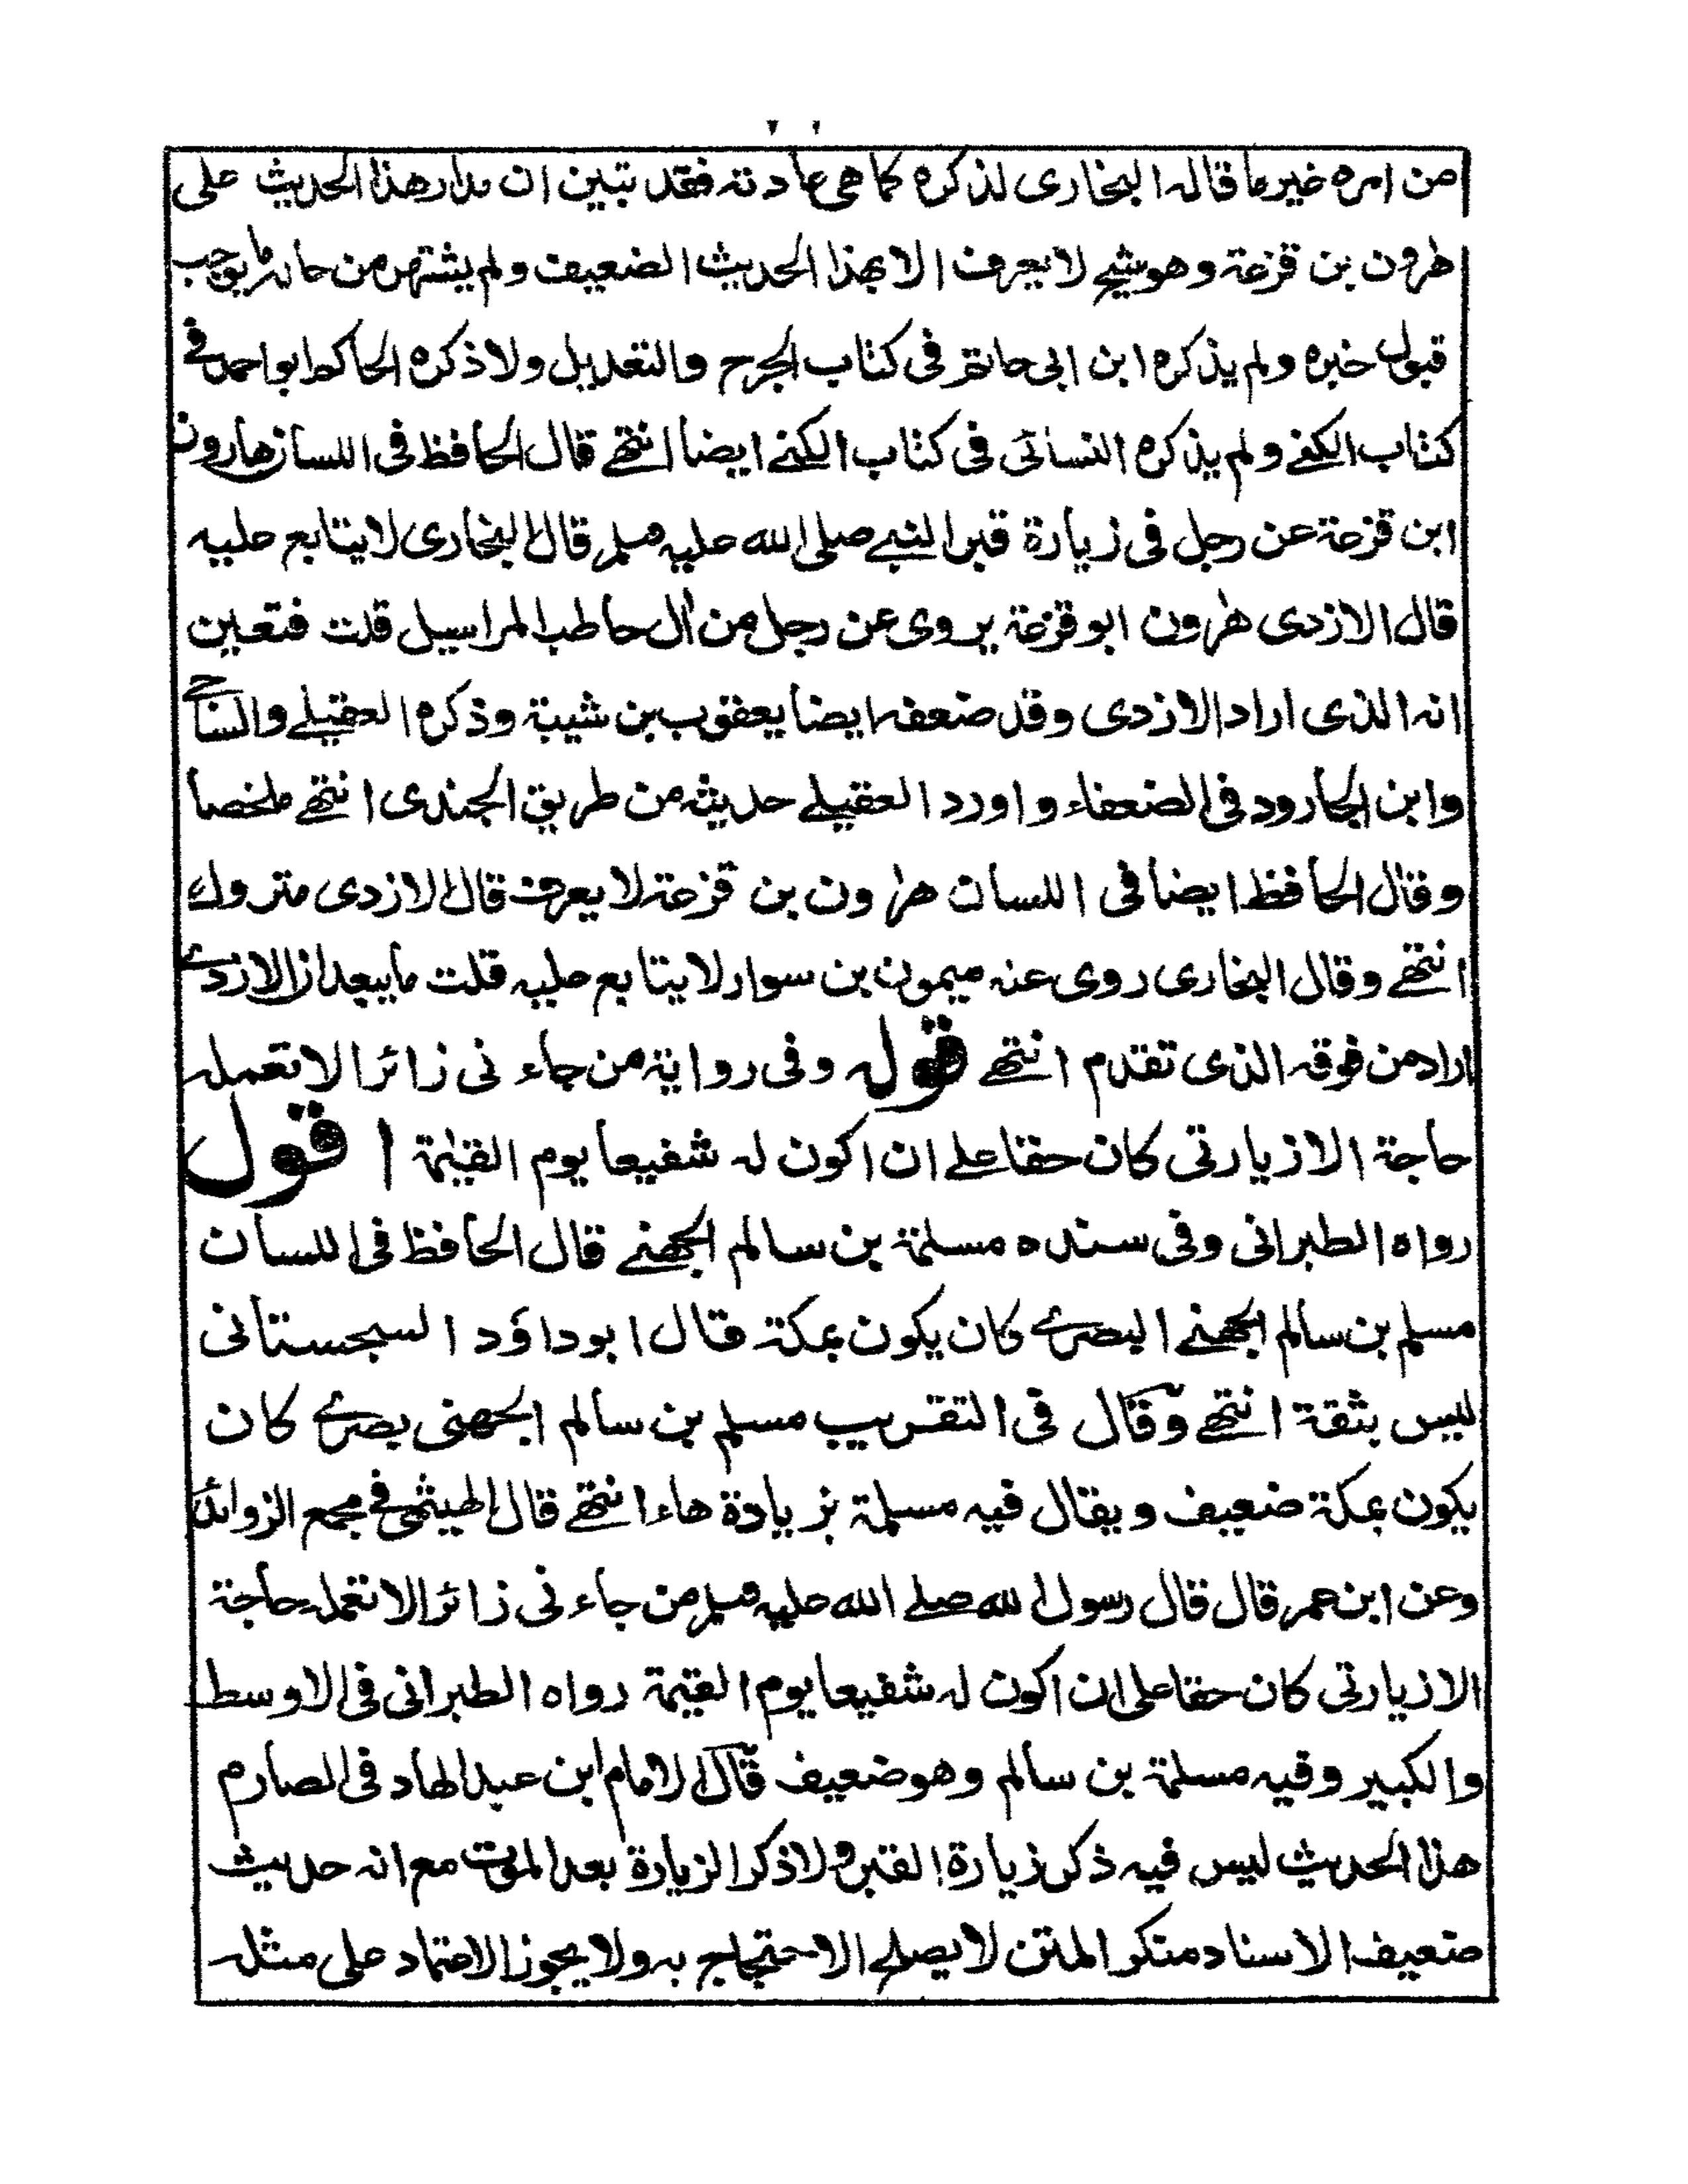 من امره غير ما قاله البخارى لذكره كما هى عادته فقد تبين ان مدار هذا الحديث على
هٰرون بن قزعة وهو شيخ لا يعرف الا بهذا الحديث الضعيف ولم يشتهر من حاله ما يوجب
قبول خبره ولم يذكره ابن ابى حاتم فى كتاب الجرح والتعديل ولا ذكره الحاكم ابو احمد فى
كتاب الكنے ولم يذكره النسائى فى كتاب الكنے ايضا انتهے قال الحافظ فى اللسان هارون
ابن قزعة عن رجل فى زيارة قبر النبے صلى الله عليه وسلم قال البخارى لا يتابع عليه
قال الازدى هٰرون ابو قزعة يروى عن رجل من اٰل حاطب المراسيل قلت فتعين
انه الذى اراد الازدى وقد ضعفه ايضا يعقوب بن شيبة وذكره العقيلے والساجے
وابن الجارود فى الضعفاء واورد العقيلے حديثه من طريق الجندى انتهے ملخصا
وقال الحافظ ايضا فى اللسان هٰرون بن قزعة لا يعرف قال الازدى متروك
انتهے وقال البخارى روى عنه ميمون بن سوار لا يتابع عليه قلت ما يبعد ان الازدے
اراد من فوقه الذى تقدم انتهے قوله وفى رواية من جاءنى زائرا لا تعمله
حاجة الا زيارتى كان حقا علے ان اكون له شفيعا يوم القيٰمة اقول
رواه الطبرانى وفى سنده مسلمة بن سالم الجهنے قال الحافظ فى اللسان
مسلم بن سالم الجهنے البصرے كان يكون بمكة قال ابو داؤد السجستانى
ليس بثقة انتهے وقال فى التقريب مسلم بن سالم الجهنى بصرے كان
يكون بمكة ضعيف ويقال فيه مسلمة بزيادة هاء انتهے قال الهيثمى فى مجمع الزوائد
وعن ابن عمر قال قال رسول الله صلے الله عليه وسلم من جاءنى زائرا لا تعمله حاجة
الا زيارتى كان حقا على ان اكون له شفيعا يوم القيمة رواه الطبرانى فى الاوسط
والكبير وفيه مسلمة بن سالم وهو ضعيف قال الامام ابن عبد الهاد فى الصارم
هذا الحديث ليس فيه ذكر زيارة القبر ولا ذكر الزيارة بعد الموت مع انه حديث
ضعيف الاسناد منكر المتن لا يصلح الاحتجاج به ولا يجوز الاعتماد على مثله